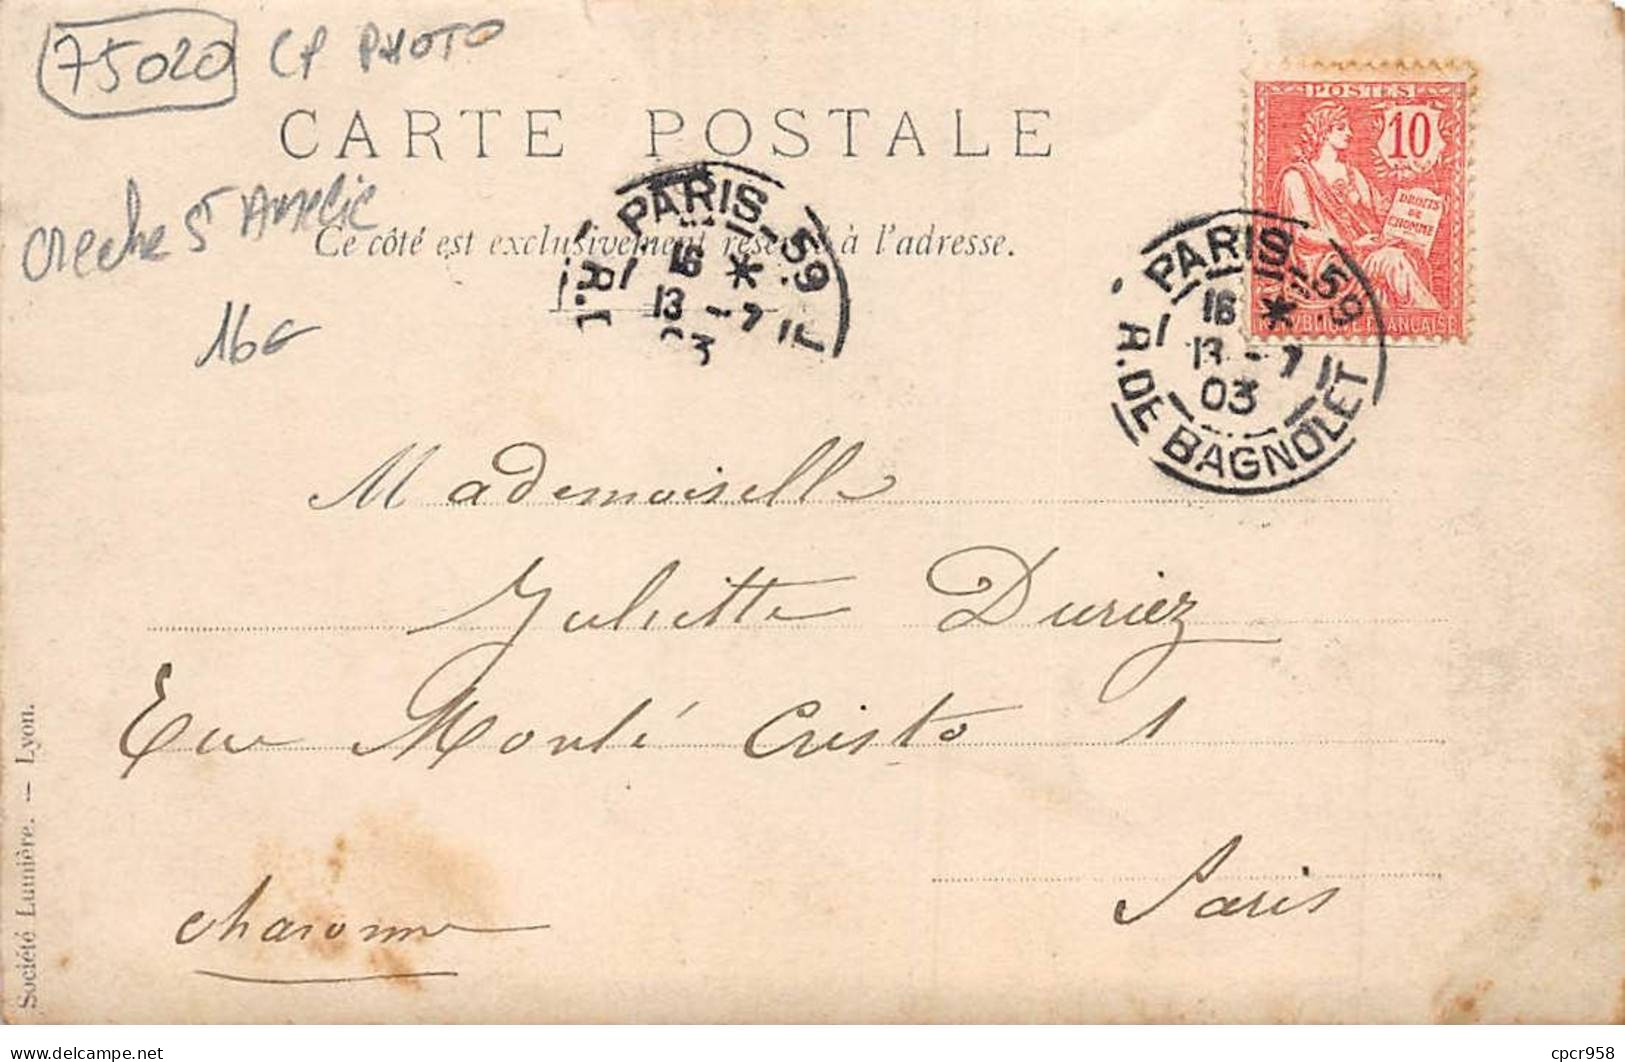 75020 CP PHOTO
CARTE POSTALE
POSTES
10
DROITS
DE
L'HOMME
REPUBLIQUE FRANÇAISE
Creche St Amelie
Ce côté est exclusivement réservé à l'adresse.
16€
PARIS-59
16 *
13-7
03
R.
PARIS-59
16 *
13-7
03
R. DE BAGNOLET
Mademoiselle
Juliette Duriez
Rue Monté Cristo 1
Paris
Charonne
Société Lumière. — Lyon.
cpcr958